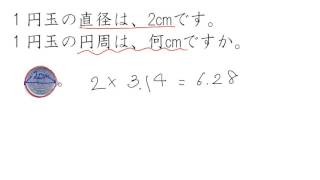 1円玉の直径は、2cmです。
1円玉の円周は、何cmですか。
2cm
2 × 3.14 = 6.28